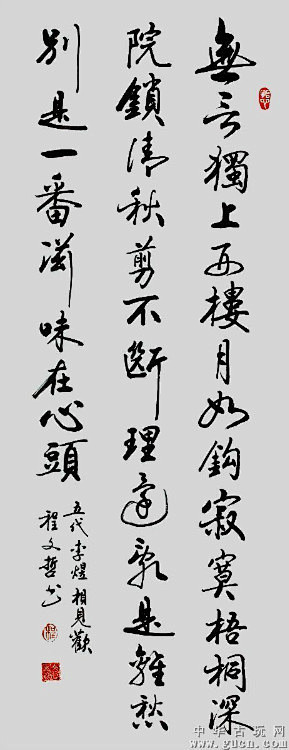 無言獨上西樓月如鉤寂寞梧桐深
院鎖清秋剪不斷理還亂是離愁
別是一番滋味在心頭
五代李煜相見歡
程文哲書
中华古玩网
www.gucn.com